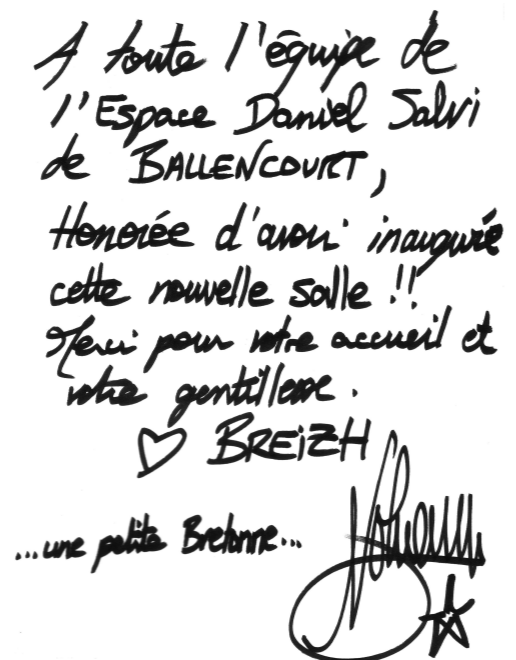 A toute l'équipe de
l'Espace Daniel Salvi
de BALLENCOURT,
Honorée d'avoir inauguré
cette nouvelle salle !!
Merci pour votre accueil et
votre gentillesse.
♡ BREIZH
...une petite Bretonne...